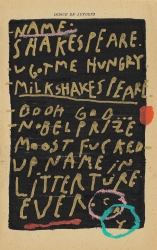 INDEX OF AUTHORS
NAME:
SHAKESPEARE.
U GOT ME HUNGRY
MILKSHAKESPEARE
BOOH GOD...
NOBEL PRIZE
MOST FUCKED
UP NAME IN
LITTERTURE.
EVER